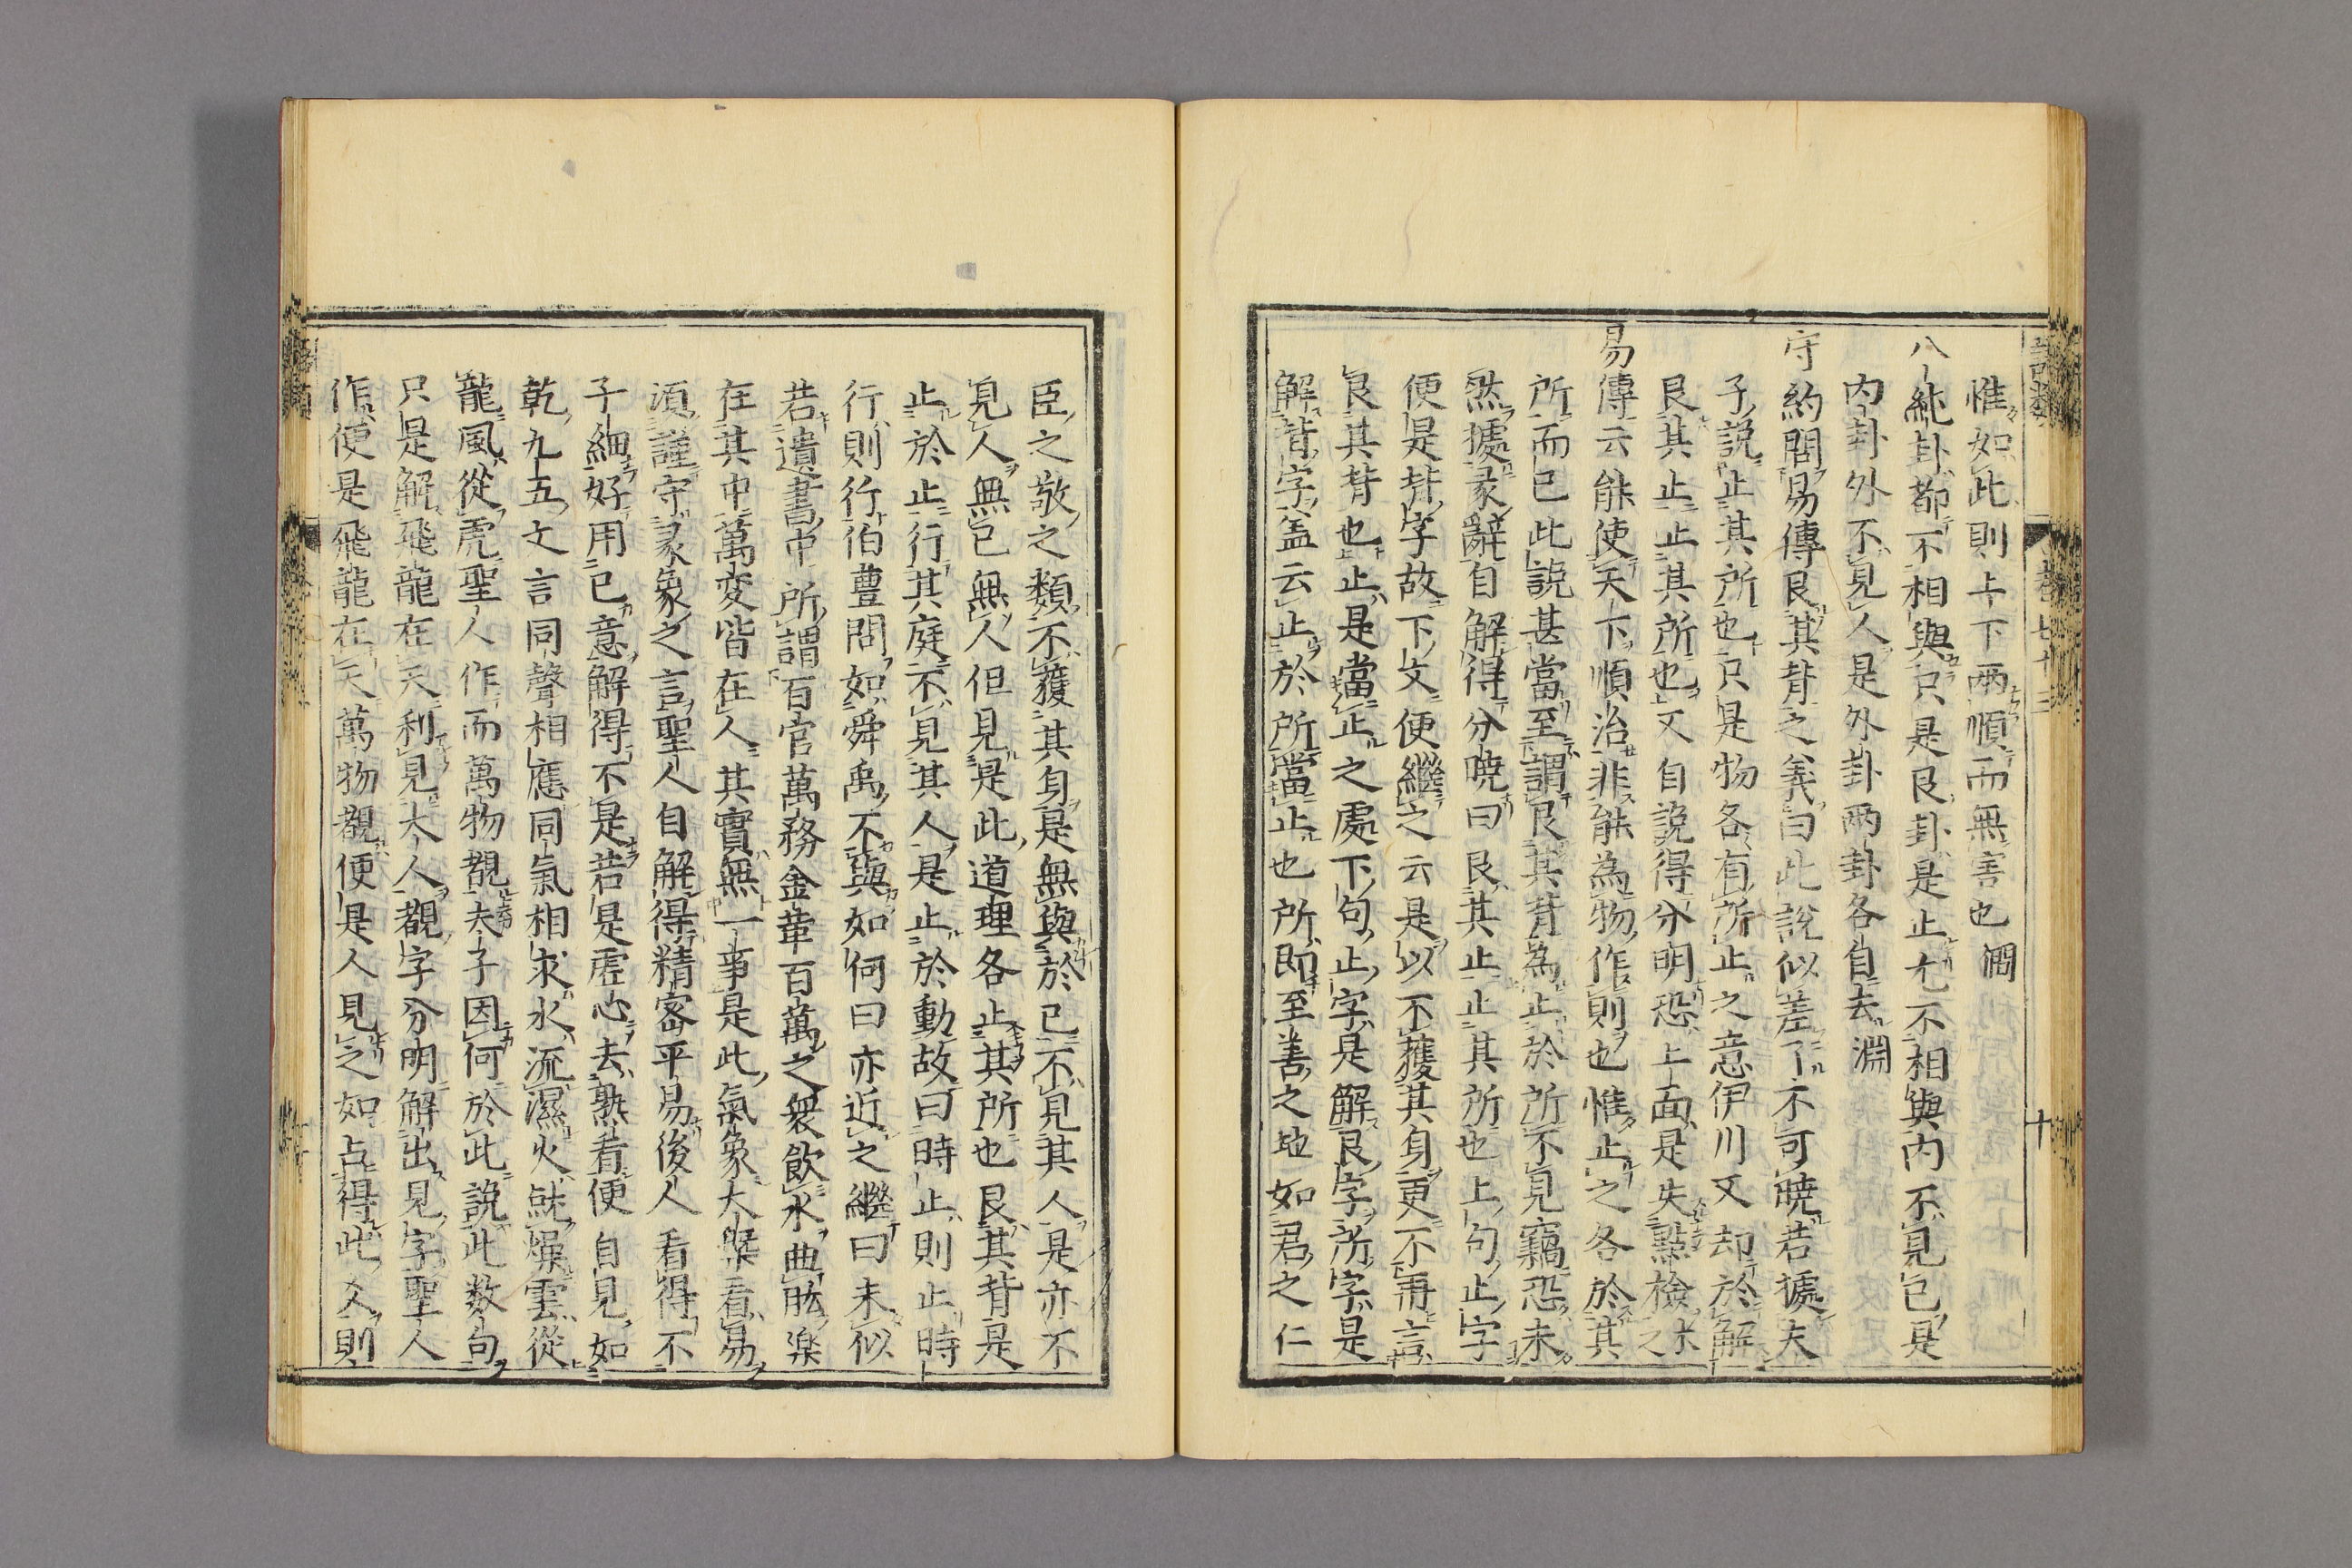 語類
卷七十三
十
惟如此則上下兩順而無害也僩
八純卦都不相與只是艮卦是止尤不相與內不見己是
內卦外不見人是外卦兩卦各自去淵
守約問易傳艮其背之義曰此說似差了不可曉若據夫
子說止其所也只是物各有所止之意伊川又却於解
艮其止止其所也又自說得分明恐上面是失點檢木之
易傳云能使天下順治非能為物作則也惟止之各於其
所而已此說甚當至謂艮其背為止於所不見竊恐未
然據彖辭自解得分曉曰艮其止止其所也上句止字
便是背字故下文便繼之云是以不獲其身更不再言
艮其背也止是當止之處下句止字是解艮字所字是
解背字盖云止於所當止也所即至善之地如君之仁
臣之敬之類不獲其身是無與於己不見其人是亦不
見人無己無人但見是此道理各止其所也艮其背是
止於止行其庭不見其人是止於動故曰時止則止時
行則行伯豊問如舜禹不與如何曰亦近之繼曰未似
若遺書中所謂百官萬務金革百萬之衆飲水曲肱楽
在其中萬変皆在人其實無一事是此氣象大槩看易
須謹守彖象之言聖人自解得精密平易後人看得不
子細好用己意解得不是若是虚心去熟看便自見如
乾九五文言同聲相應同氣相求水流濕火就燥雲從
龍風從虎聖人作而萬物覩夫子因何於此說此数句
只是解飛龍在天利見大人覩字分明解出見字聖人
作便是飛龍在天萬物覩便是人見之如占得此爻則